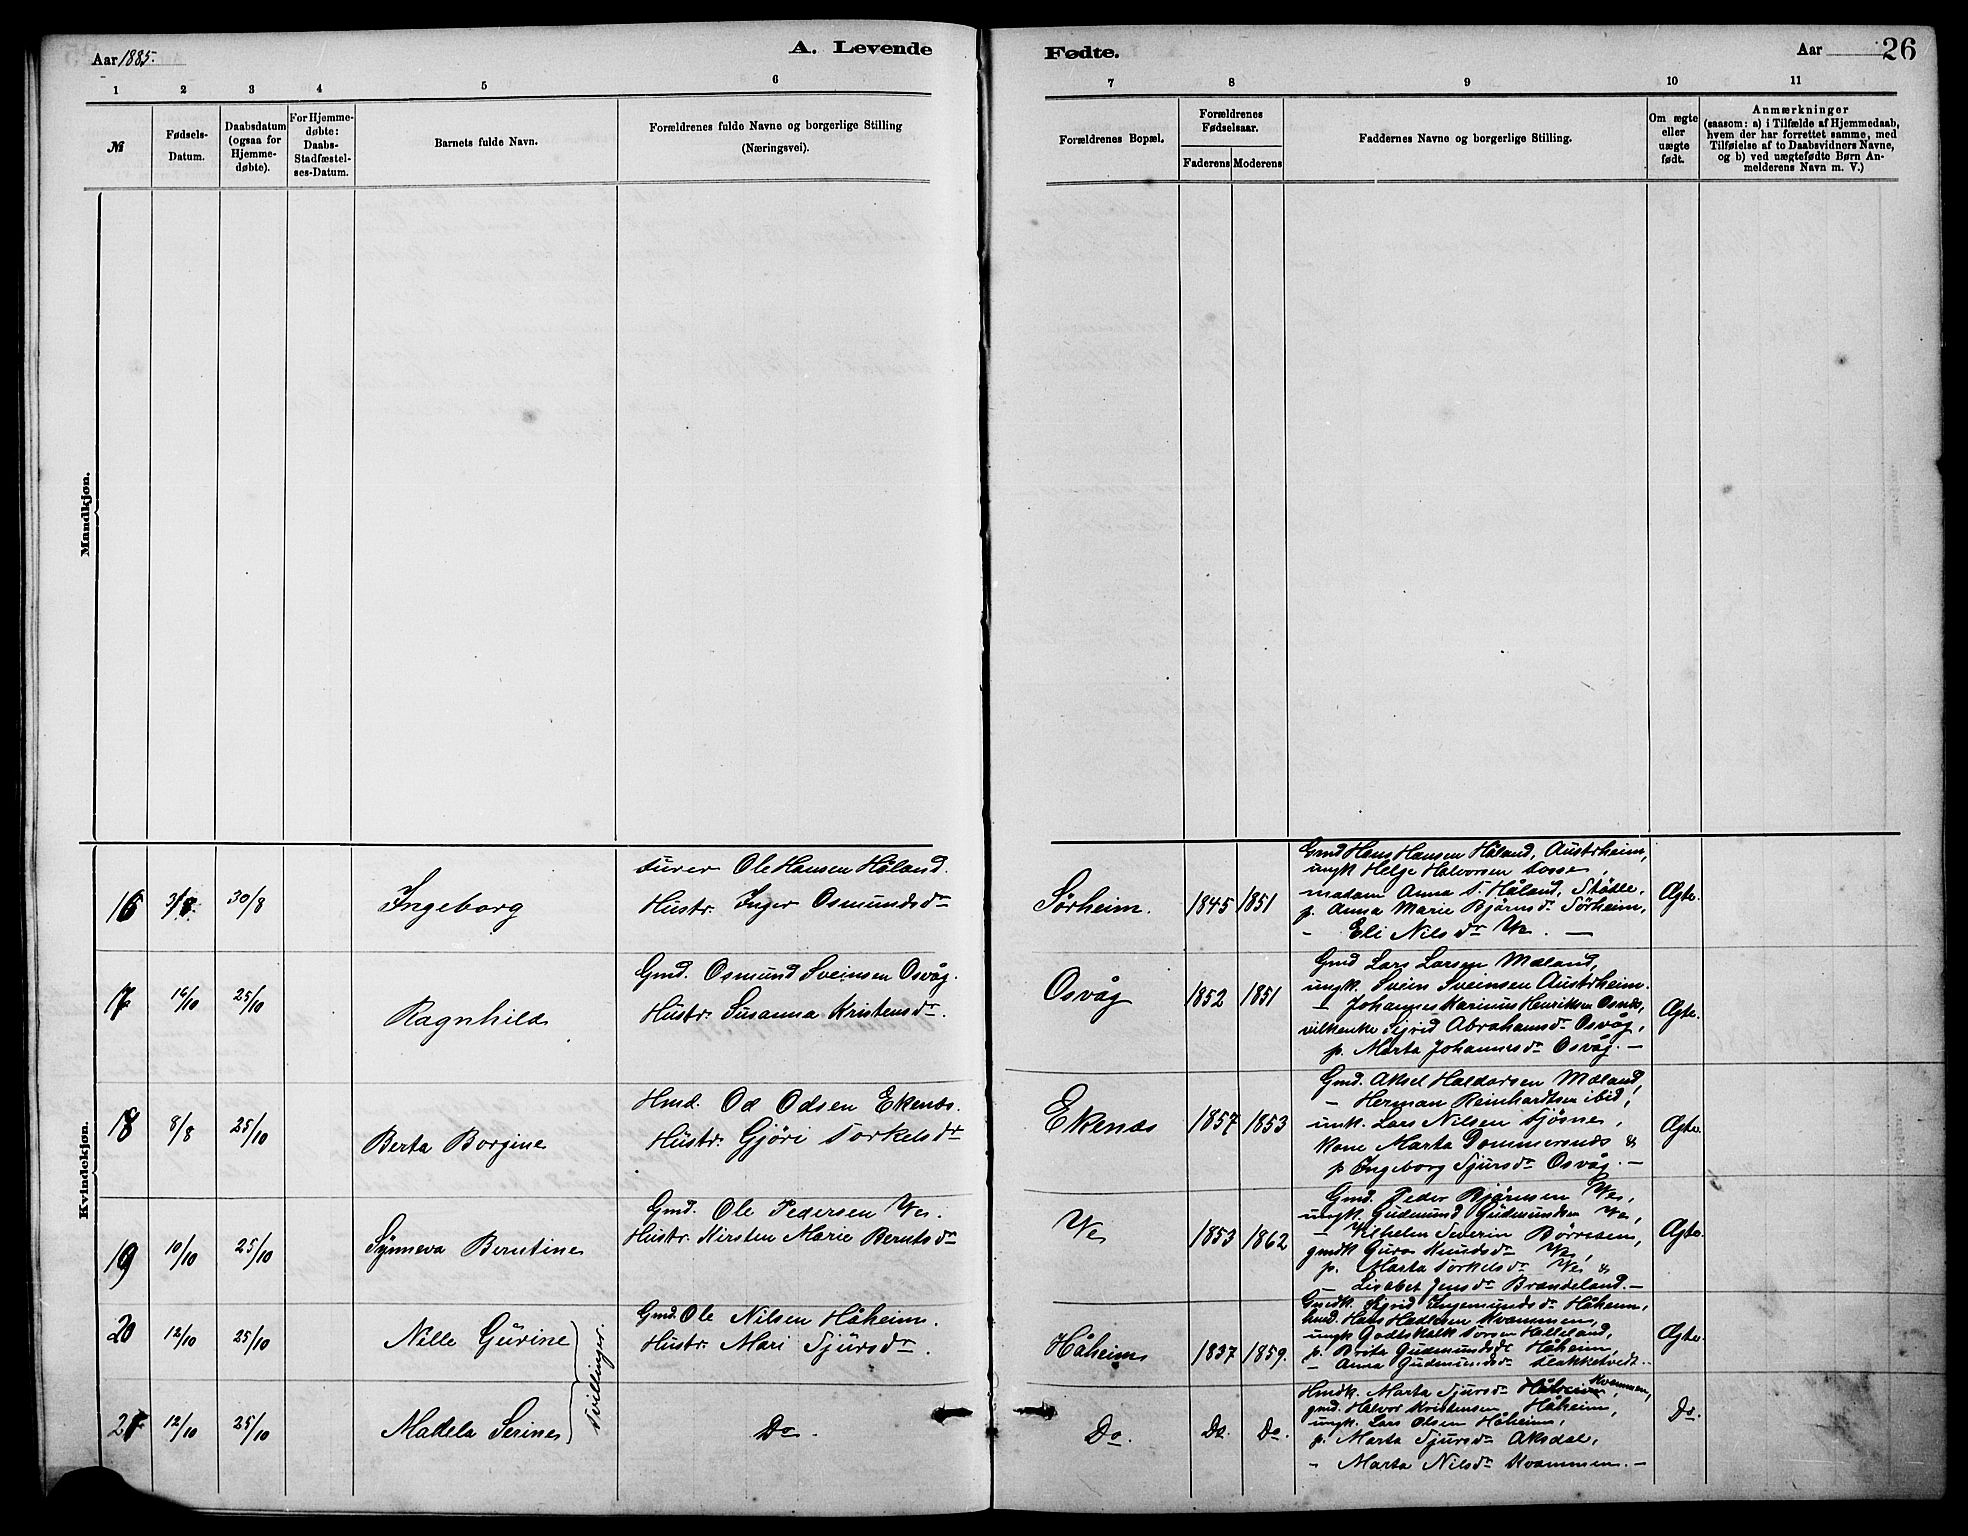 Aar 1885.
A. Levende
Fødte.
Aar
26
1
2
3
4
5
6
7
8
9
10
11
№
Fødsels-
Datum.
Daabsdatum
(ogsaa for
Hjemme-
døbte).
For Hjemme-
døbte:
Daabs-
Stadfæstel-
ses-Datum.
Barnets fulde Navn.
Forældrenes fulde Navne og borgerlige Stilling
(Næringsvei).
Forældrenes Bopæl.
Forældrenes
Fødselsaar.
Faderens
Moderens
Faddernes Navne og borgerlige Stilling.
Om ægte
eller
uægte
født.
Anmærkninger
(saasom: a) i Tilfælde af Hjemmedaab,
hvem der har forrettet samme, med
Tilføielse af to Daabsvidners Navne,
og b) ved uægtefødte Børn An-
melderens Navn m. V.)
Mandkjøn.
Kvindekjøn.
16
30/8
Ingeborg
Ole Hansen Håland.
Hustr. Inger Osmundsdr
Sørheim.
1845
1851
Gmd Hans Hansen Håland, Austrheim,
ungk Helge Halvorsen
madam Anna T. Håland, Støtle.
p. Anna Marie Bjørnsdr Sørheim,
- Eli Nilsdr Ve. —
Ægte.
17
16/10
25/10
Ragnhild
Gmd. Osmund Sveinsen Osvåg.
Hustr. Susanna Kristensdr.
Osvåg
1852
1851
Gmd Lars Larsen Mæland,
ungk. Svein Sveinsen Austrheim.
— Johannes Karinius Henriksen Osnes,
Sigrid Abrahamsdr Osvåg,
p. Marta Johannesdr Osvåg. —
Ægte.
18
8/8
25/10
Berta Borgine
Hmd. Od Odsen Ekenæs.
Hustr. Gjöri Torkelsdr
Ekenæs
1857
1853
Gmd. Aksel Haldorsen Mæland,
— Herman Reinhardtsen ibid,
unk. Lars Nilsen Sjøsnes,
Kone Marta Dommersnes &
p Ingeborg Sjursdr Osvåg. —
Ægte.
19
10/10
25/10
Synneva Berntine
Gmd. Ole Pedersen Ve.
Hustr. Kirsten Marie Berntsdr
Ve
1853
1862
Gmd. Peder Bjørnsen Ve,
ungk. Gudmund Gudmundsen Ve,
— Vilhelm Severin Børresen,
gmdk Guro Knudsdr Ve,
p. Marta Torkelsdr Ve &
— Lisabet Jensdr Brandeland. —
Ægte.
20
12/10
25/10
Nille Gurine
Tvillinger.
Gmd. Ole Nilsen Håheim.
Hustr. Mari Sjursdr.
Håheim
1837
1859.
Gmdk. Sigrid Ingemundsdr Håheim,
Hans Kvammen,
ungk Godtskalk Torsen Helleland,
p. Brita Gudmundsdr Håheim,
— Anna Gudmundsdr Slakketvedt. —
Ægte.
21
12/10
25/10
Madela Serine
Do.
Do.
Do.
Do.
Hmdk. Marta Sjursdr Håheim Kvammen,
gmd. Halvor Kristensen Håheim,
ungk. Lars Olsen Håheim,
p. Marta Sjursdr Aksdal,
— Marta Nilsdr Kvammen. —
Do.